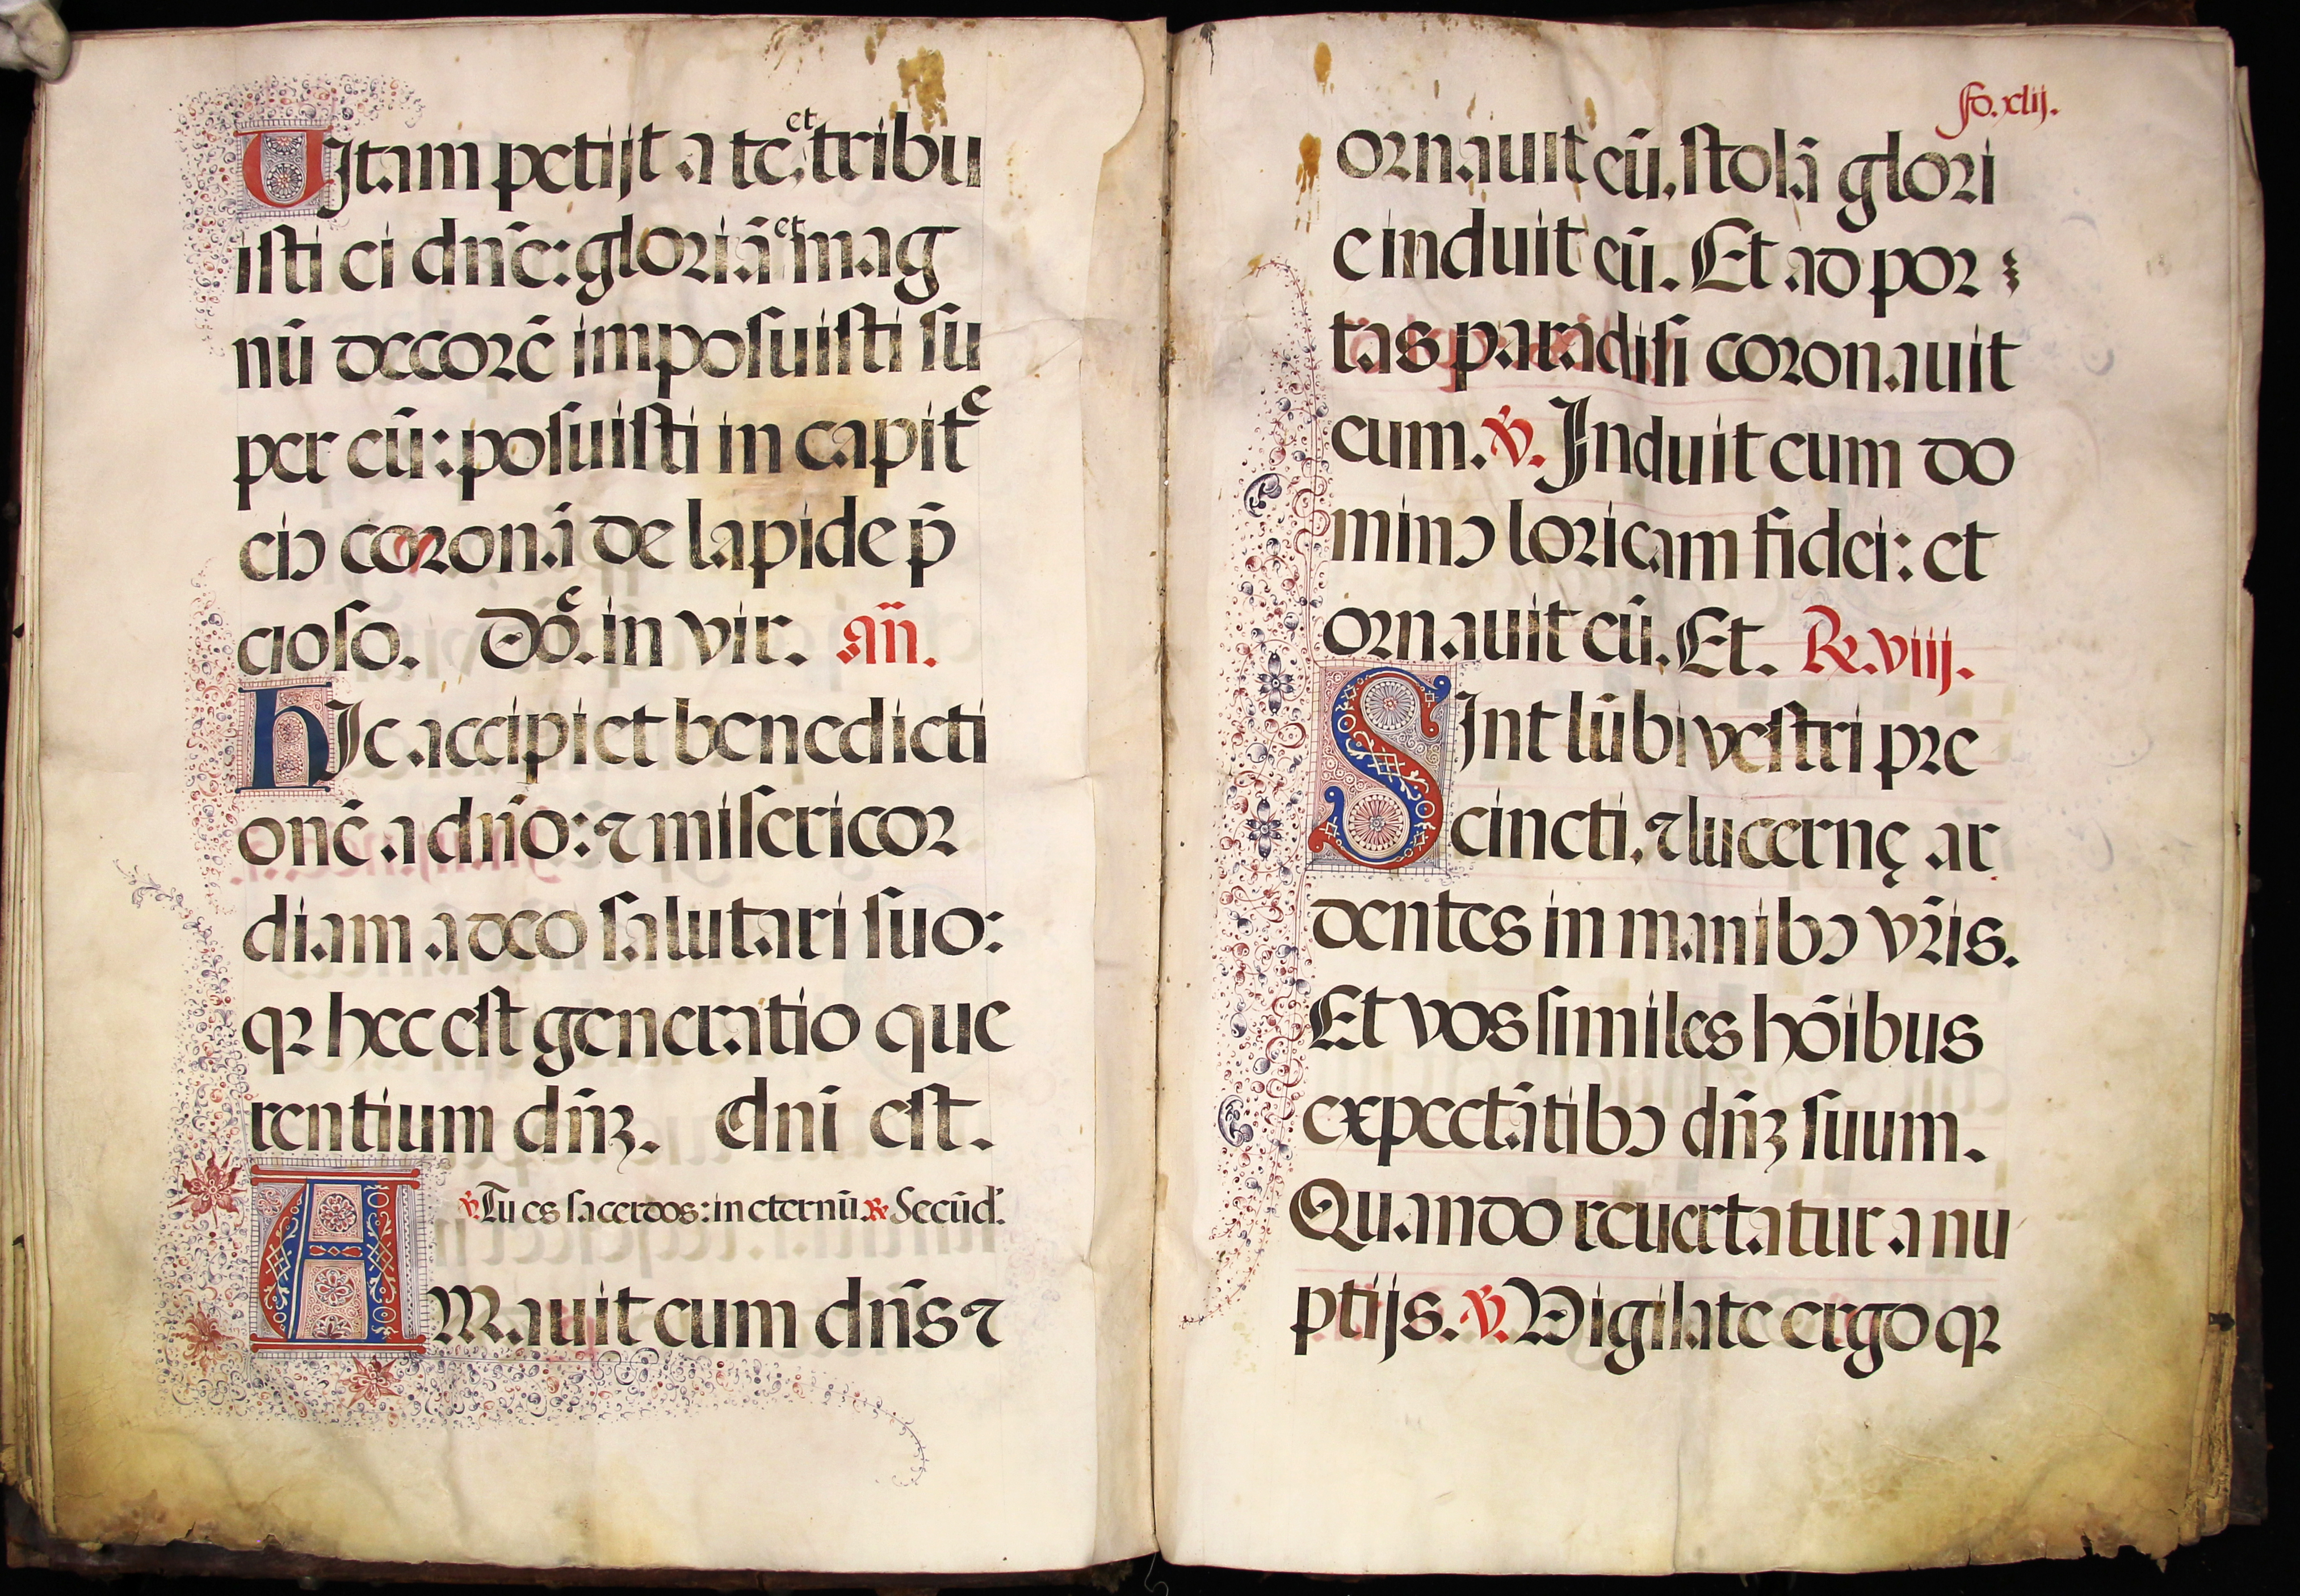 VItam petijt a te, et tribu
isti ei dn̄e: gloriā et mag
nū decorē imposuisti su
per eū: posuisti in capite
eiꝰ coronā de lapide p̄
cioso. Dō. in vir. an̄.
hIc accipiet benedicti
onē a dn̄o: ⁊ misericor
diam a deo salutari suo:
qꝛ hec est generatio que
rentium dn̄ꝫ. dnī est.
℣. Tu es sacerdos: in eternū ℞ Secūd'.
AMauit eum dn̄s ⁊
fo. xlij.
ornauit eū, stolā glori
e induit eū. Et ad por
tas paradisi coronauit
eum. ℣. Induit eum do
minꝰ loricam fidei: et
ornauit eū. Et. ℞. viij.
SInt lūbi vestri pre
cincti, ⁊ lucernę ar
dentes in manibꝰ vr̄is.
Et vos similes hōibus
expectātibꝰ dn̄ꝫ suum.
Quando reuertatur a nu
ptijs. ℣. Vigilate ergo qꝛ